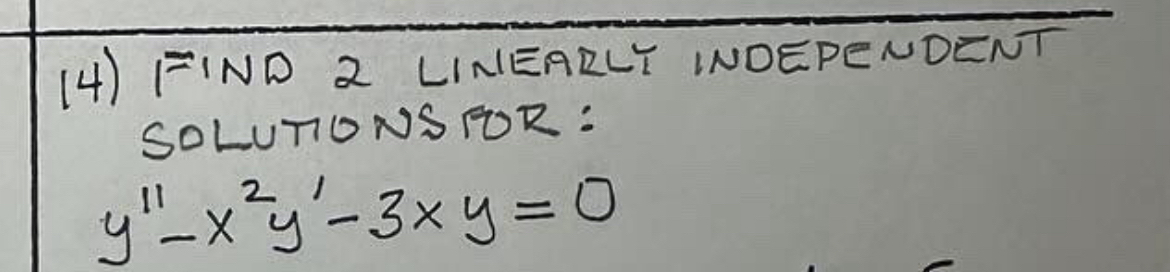 14) FIND 2 LINEARLY INDEPENDENT
SOLUTIONS FOR:
y'' - x²y' - 3xy = 0